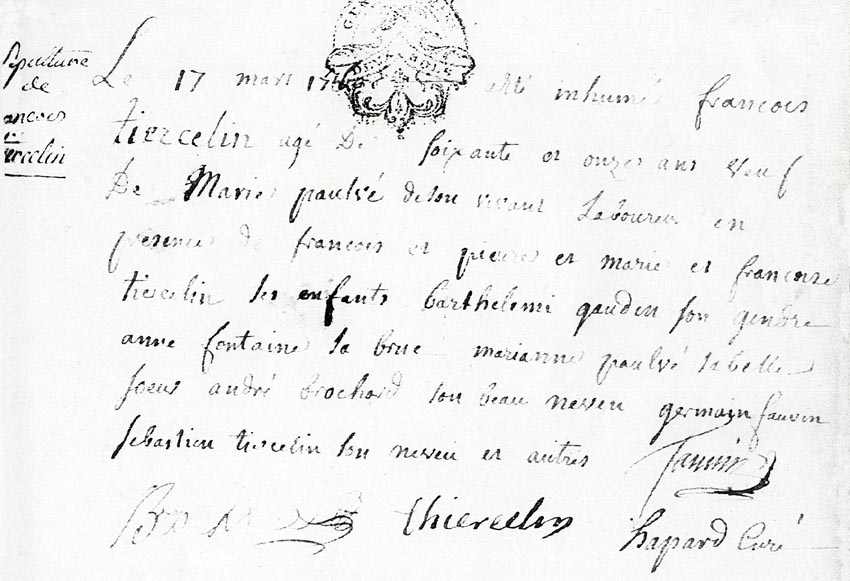 Sepulture
de
ancois
ercelin
Le 17 mars 17 a été inhumé francois
tiercelin agé De soixante et onze ans veuf
De Marie paulvé deson vivant Laboureur en
presence de francois et pierre et marie et francoise
tiercelin ses enfants barthelemi gauden son gendre
anne fontaine sa brue marianne paulvé sa belle
soeur andré brochard son beau neveu germain fauvin
sebastien tiercelin son neveu et autres fauvin
thiercelin hapard Curé